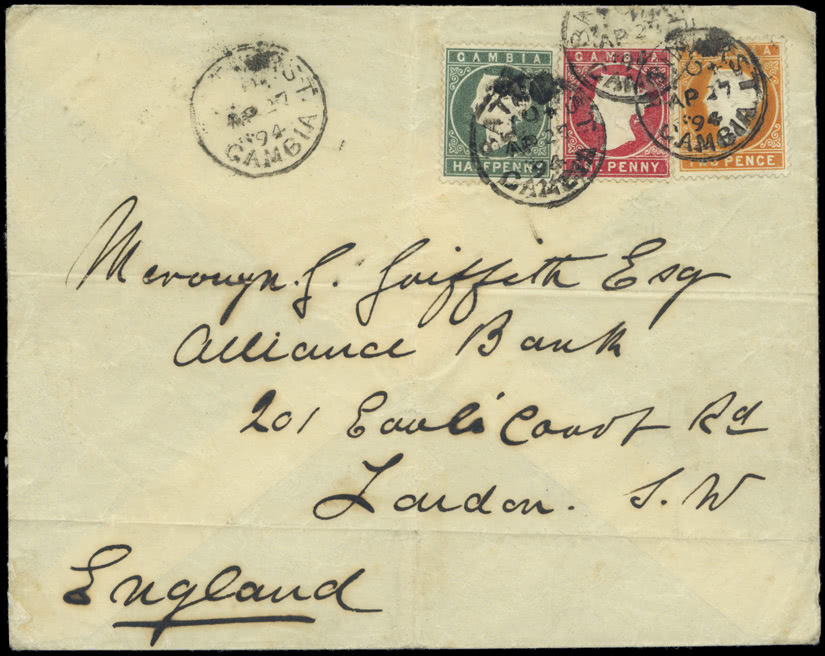 GAMBIA GAMBIA A
HALFPENNY ONE PENNY PENCE
BATHURST
AP 27
94
GAMBIA
AP 27
94
GAMBIA
AP 27
94
GAMBIA
AP 27
Mervougn. G. Griffith Esq
Alliance Bank
201 Earl's Court Rd
London. S. W
England